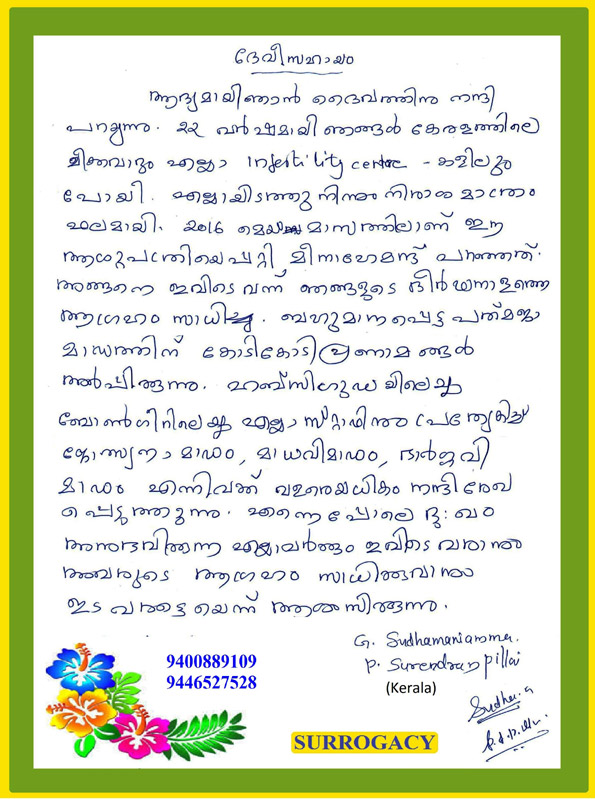 ദേവീസഹായം
ആദ്യമായിഞാൻ ദൈവത്തിനു നന്ദി
പറയുന്നു. 22 വർഷമായി ഞങ്ങൾ കേരളത്തിലെ
മിക്കവാറും എല്ലാ Infertility centre - കളിലും
പോയി. എല്ലായിടത്തു നിന്നും നിരാശ മാത്രം
ഫലമായി. 2016 മെയ് മാസത്തിലാണ് ഈ
ആശുപത്രിയെപ്പറ്റി മീനാഹേമന്ദ് പറഞ്ഞത്.
അങ്ങനെ ഇവിടെ വന്ന് ഞങ്ങളുടെ ദീർഘനാളത്തെ
ആഗ്രഹം സാധിച്ചു. ബഹുമാനപ്പെട്ട പത്മജാ
മാഡത്തിന് കോടികോടി പ്രണാമങ്ങൾ
അർപ്പിക്കുന്നു. ഹബ്സിഗുഡയിലെയും
ബോൺഗിറിലെയും എല്ലാ സ്റ്റാഫിനും പ്രത്യേകിച്ച്
ജ്യോത്സ്യനാ മാഡം, മാധവിമാഡം, ഭാർഗ്ഗവി
മാഡം എന്നിവർക്ക് വളരെയധികം നന്ദി രേഖ
പ്പെടുത്തുന്നു. എന്നെപ്പോലെ ദു:ഖം
അനുഭവിക്കുന്ന എല്ലാവർക്കും ഇവിടെ വരാനും
അവരുടെ ആഗ്രഹം സാധിക്കുവാനും
ഇട വരട്ടെയെന്ന് ആശംസിക്കുന്നു.
G. Sudhamaniamma.
P. Surendran pillai
(Kerala)
9400889109
9446527528
Sudha. G
SURROGACY